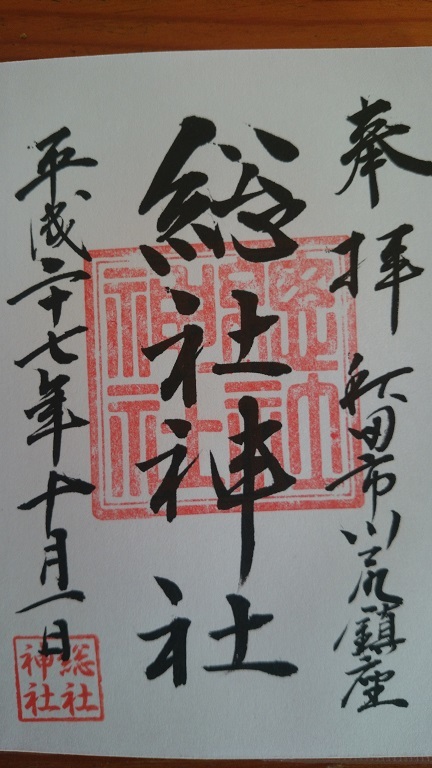 奉拝 秋田市川尻鎮座
総社神社
平成二十七年十月一日
總社
神社
総社
神社